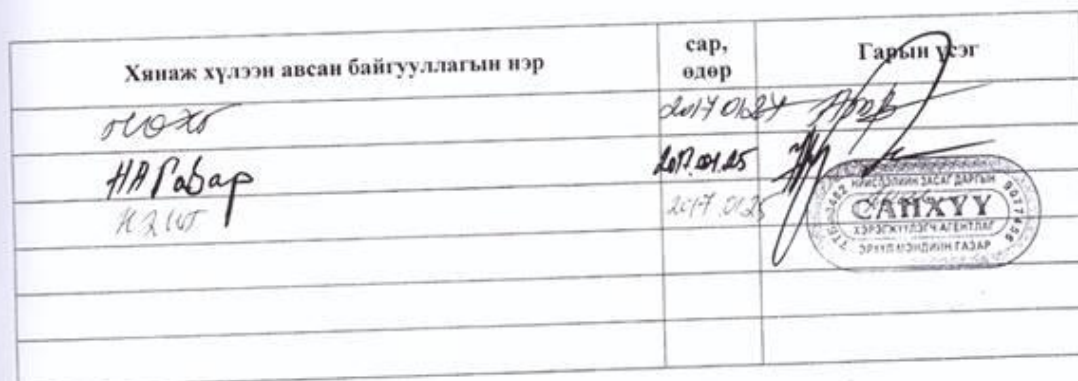 Хянаж хүлээн авсан байгууллагын нэр
сар, өдөр
Гарын үсэг
2017 01 24
НА Газар
2017.01.25
2017.01.25
НИЙСЛЭЛИЙН ЗАСАГ ДАРГЫН
САНХҮҮ
ХЭРЭГЖҮҮЛЭГЧ АГЕНТЛАГ
ЭРҮҮЛ МЭНДИЙН ГАЗАР
9077455